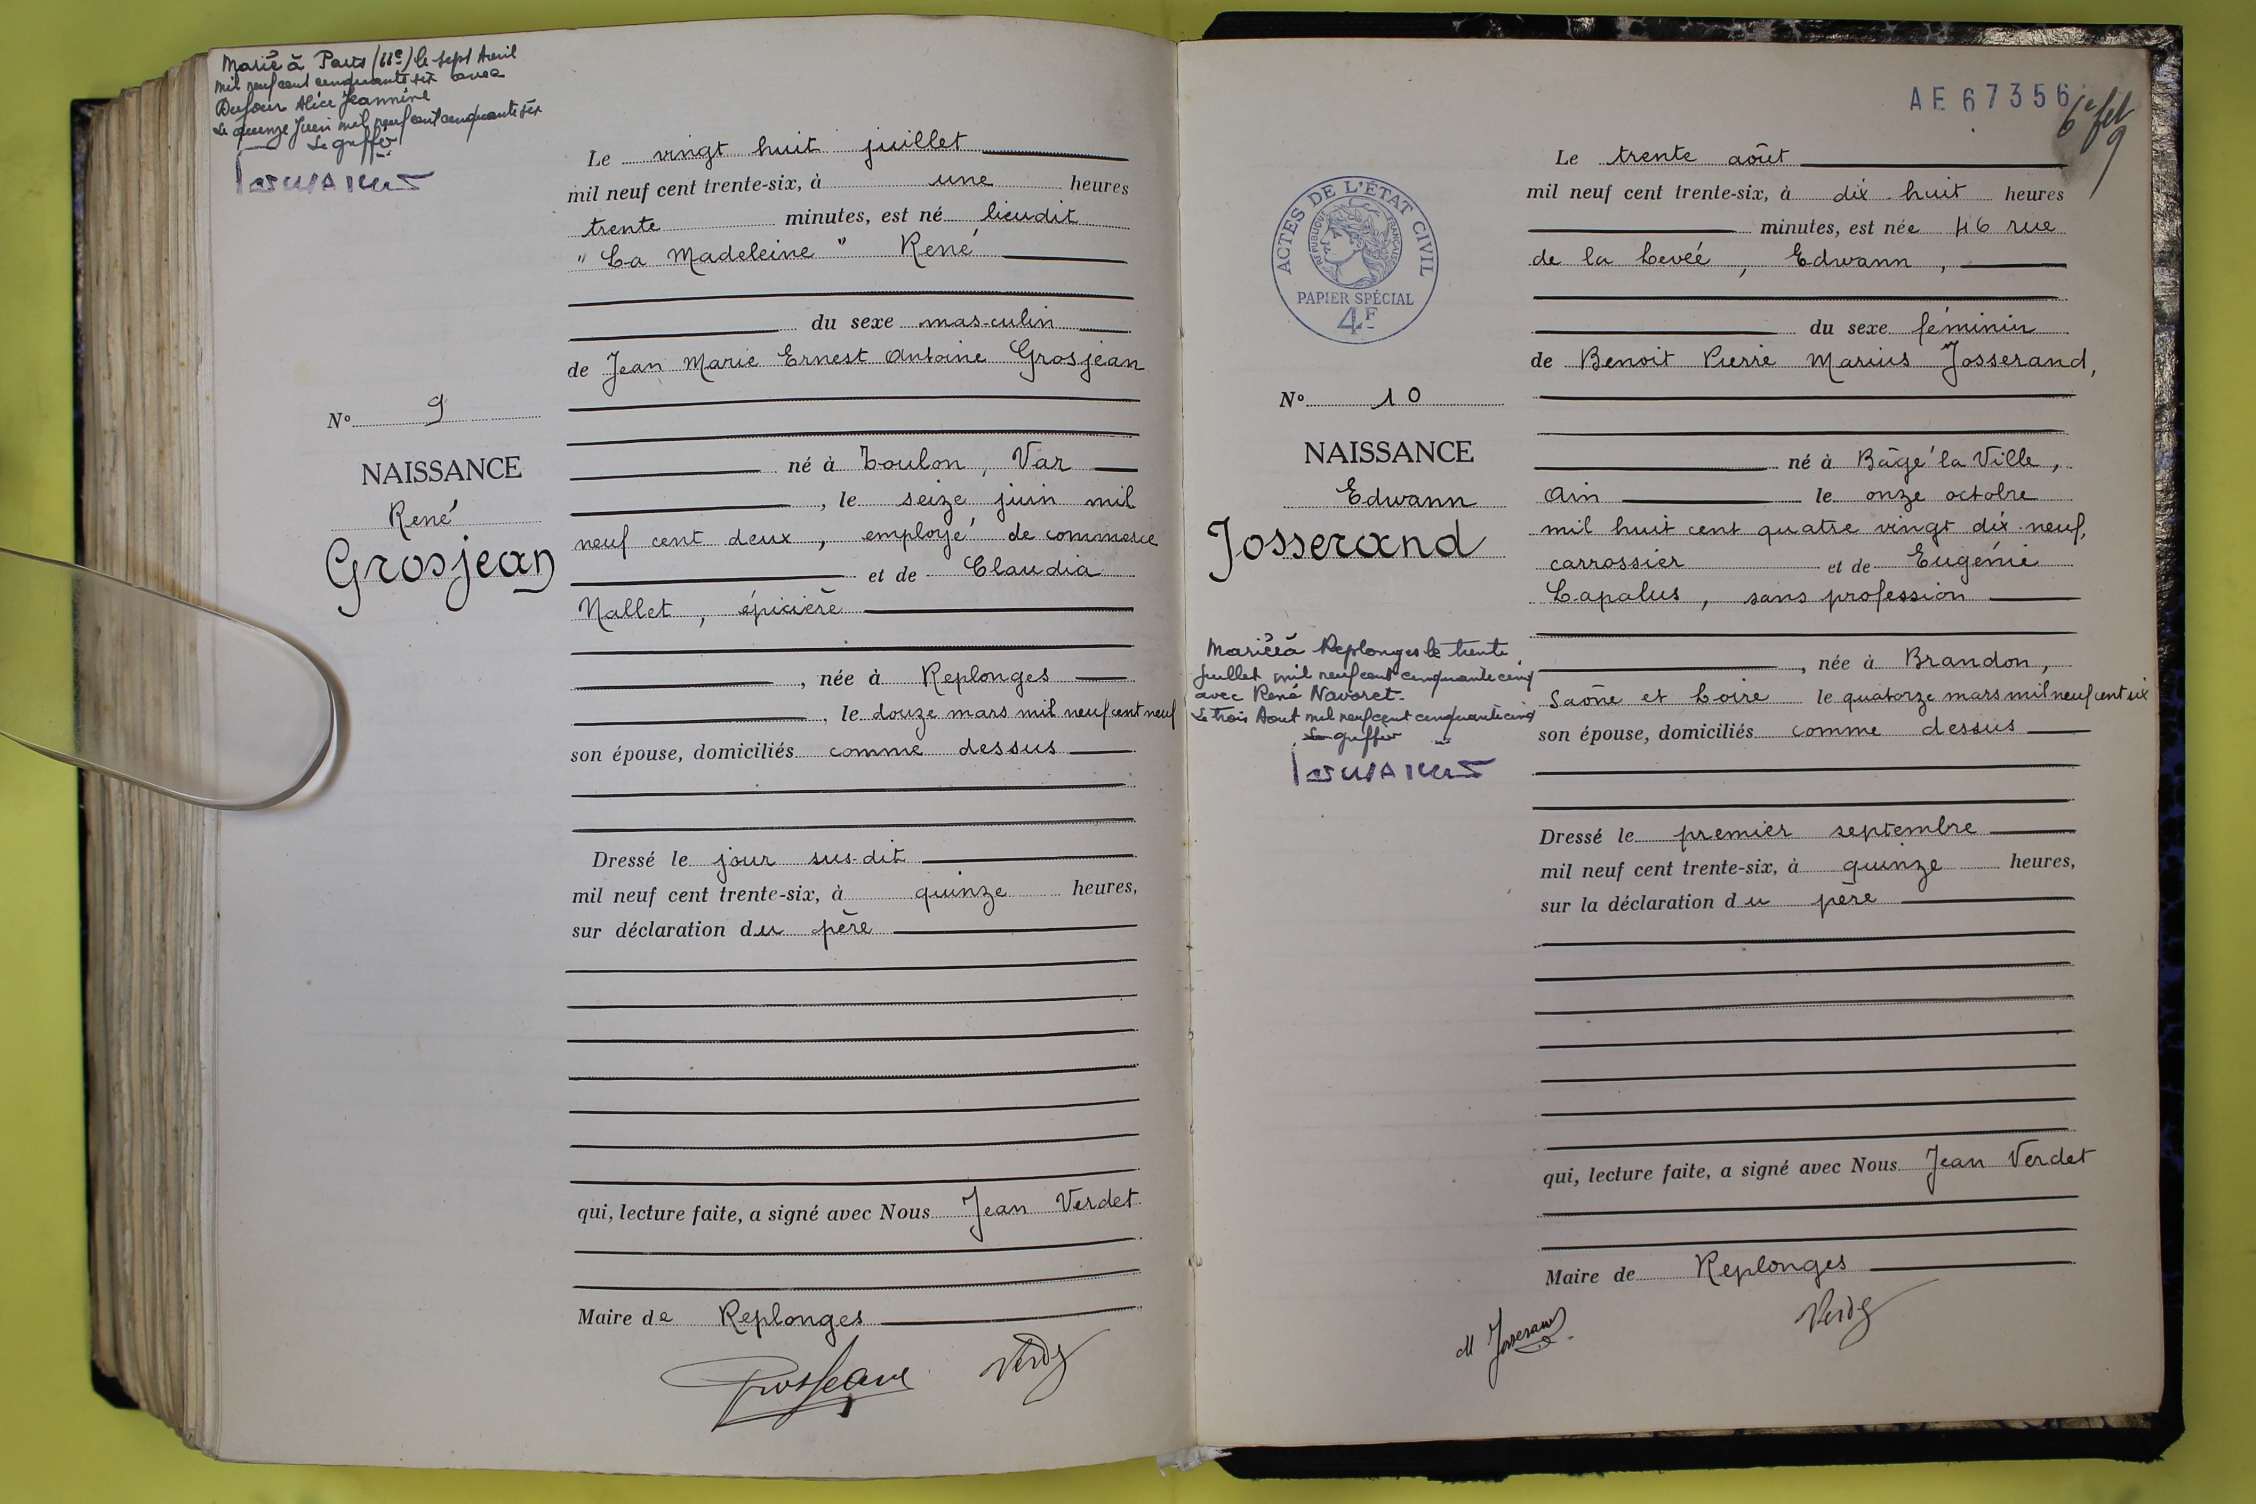 Marié à Paris (11e) le sept Avril
mil neuf cent cinquante six avec
Dufour Alice Jeannine
Le quinze Juin mil neuf cent cinquante six
Le greffier
Le vingt huit juillet
mil neuf cent trente-six, à une heures
trente minutes, est né lieudit
" La Madeleine " René
du sexe masculin
de Jean Marie Ernest Antoine Grosjean
né à Toulon, Var
, le seize juin mil
neuf cent deux, employé de commerce
et de Claudia
Nallet, épicière
, née à Replonges
, le douze mars mil neuf cent neuf
son épouse, domiciliés comme dessus
Dressé le jour sus-dit
mil neuf cent trente-six, à quinze heures,
sur déclaration du père
qui, lecture faite, a signé avec Nous Jean Verdet
Maire de Replonges
Grosjean Verdet
No 9
NAISSANCE
René
Grosjean
AE 67356
6e fet
9
ACTES DE L'ÉTAT CIVIL
RÉPUBLIQUE FRANÇAISE
PAPIER SPÉCIAL
4F
Le trente août
mil neuf cent trente-six, à dix-huit heures
minutes, est née 46 rue
de la Levéé, Edwann,
du sexe féminin
de Benoit Pierre Marius Josserand,
né à Bâgé la Ville,
Ain le onze octobre
mil huit cent quatre vingt dix-neuf,
carrossier et de Eugénie
Lapalus, sans profession
, née à Brandon,
Saône et Loire le quatorze mars mil neuf cent six
son épouse, domiciliés comme dessus
Dressé le premier septembre
mil neuf cent trente-six, à quinze heures,
sur la déclaration du père
qui, lecture faite, a signé avec Nous Jean Verdet
Maire de Replonges
M Josserand Verdet
No 10
NAISSANCE
Edwann
Josserand
Mariée à Replonges le trente
Juillet mil neuf cent cinquante cinq
avec René Navoret.
Le trois Aout mil neuf cent cinquante cinq
Le greffier